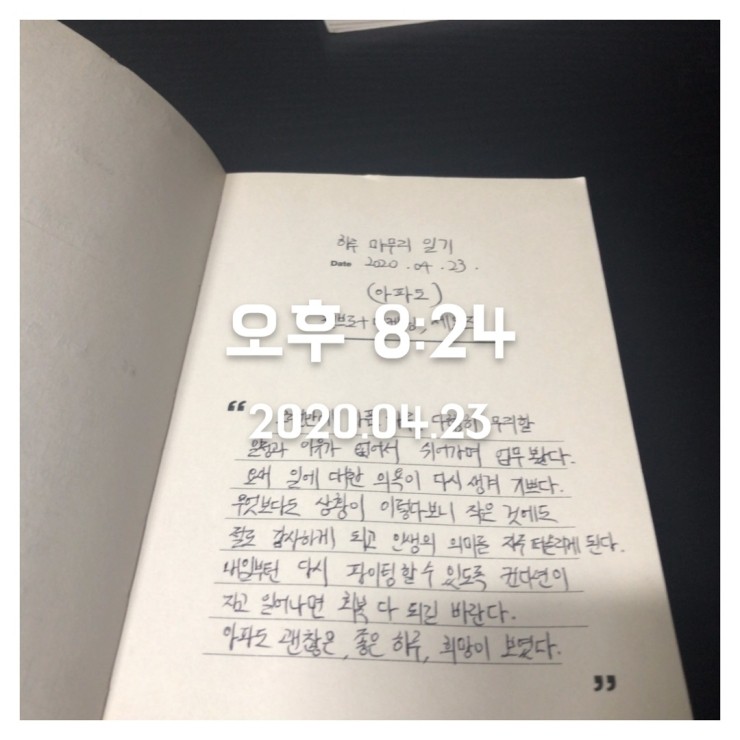 하루 마무리 일기
Date 2020.04.23.
(아파도)
오후 8:24
2020.04.23
“
무리할
일정과 이유가 없어서 쉬어가며 업무 봤다.
오버 일에 대한 의욕이 다시 생겨 기쁘다.
무엇보다도 상황이 이렇다보니 작은 것에도
절로 감사하게 되고 인생의 의미를 자주 떠올리게 된다.
내일부턴 다시 파이팅할 수 있도록 컨디션이
자고 일어나면 회복 다 되길 바란다.
아파도 괜찮은, 좋은 하루, 희망이 보였다.
”